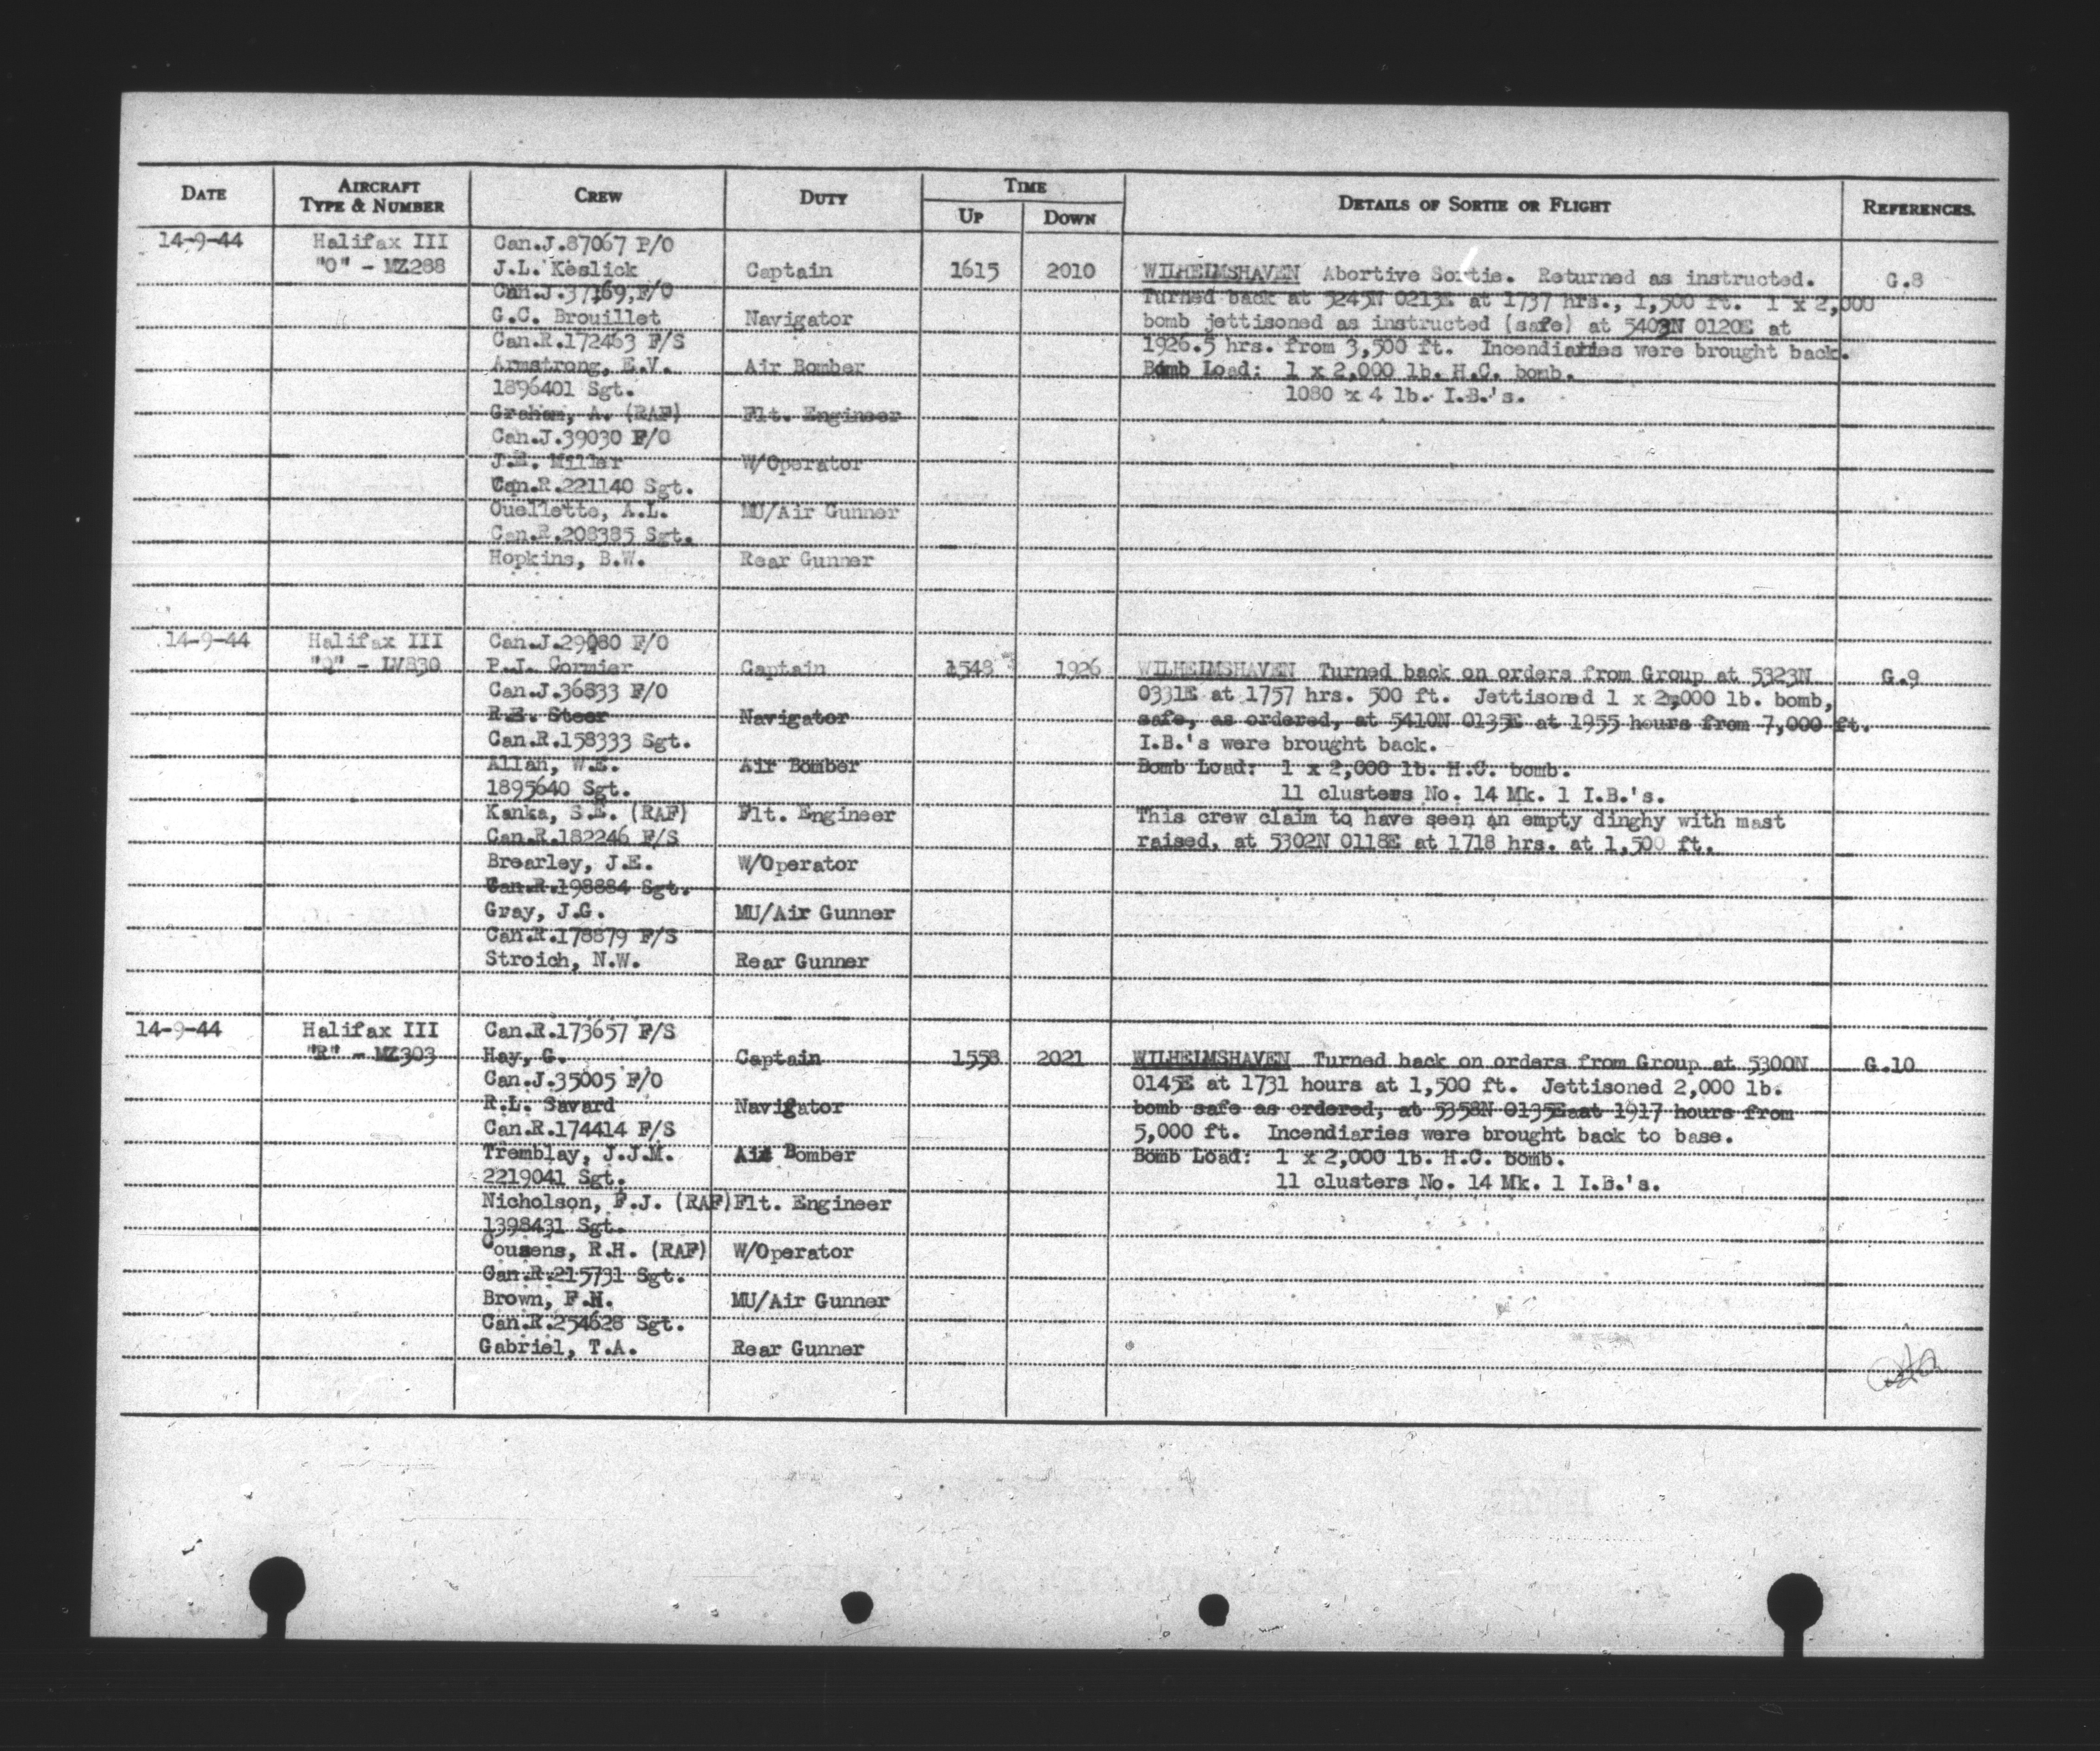 DATE AIRCRAFT TYPE & NUMBER CREW DUTY TIME UP DOWN DETAILS OF SORTIE OR FLIGHT REFERENCES.
14-9-44 Halifax III Can.J.87067 P/O
"O" - MZ288 J.L. Keslick Captain 1615 2010 WILHELMSHAVEN Abortive Sortie. Returned as instructed. G.8
Can.J.37169, F/O Turned back at 5245N 0213E at 1737 hrs., 1,500 ft. 1 x 2,000
G.C. Brouillet Navigator bomb jettisoned as instructed (safe) at 5403N 0120E at
Can.R.172463 F/S 1926.5 hrs. from 3,500 ft. Incendiaries were brought back.
Armstrong, E.V. Air Bomber Bomb Load: 1 x 2,000 lb. H.C. bomb.
1896401 Sgt. 1080 x 4 lb. I.B.'s.
Graham, A. (RAF) Flt. Engineer
Can.J.39030 F/O
J.E. Miller W/Operator
Can.R.221140 Sgt.
Ouellette, A.L. MU/Air Gunner
Can.R.208385 Sgt.
Hopkins, B.W. Rear Gunner
14-9-44 Halifax III Can.J.29080 F/O
"Q" - LV830 P.J. Cormier Captain 1548 1926 WILHELMSHAVEN Turned back on orders from Group at 5323N G.9
Can.J.36833 F/O 0331E at 1757 hrs. 500 ft. Jettisoned 1 x 2,000 lb. bomb,
R.E. Steer Navigator safe, as ordered, at 5410N 0135E at 1955 hours from 7,000 ft.
Can.R.158333 Sgt. I.B.'s were brought back.
Allan, W.E. Air Bomber Bomb Load: 1 x 2,000 lb. H.C. bomb.
1895640 Sgt. 11 clusters No. 14 Mk. 1 I.B.'s.
Kanka, S.E. (RAF) Flt. Engineer This crew claim to have seen an empty dinghy with mast
Can.R.182246 F/S raised, at 5302N 0118E at 1718 hrs. at 1,500 ft.
Brearley, J.E. W/Operator
Can.R.198884 Sgt.
Gray, J.G. MU/Air Gunner
Can.R.178879 F/S
Stroich, N.W. Rear Gunner
14-9-44 Halifax III Can.R.173657 F/S
"R" - MZ303 Hay, G. Captain 1558 2021 WILHELMSHAVEN Turned back on orders from Group at 5300N G.10
Can.J.35005 F/O 0145E at 1731 hours at 1,500 ft. Jettisoned 2,000 lb.
R.L. Savard Navigator bomb safe as ordered, at 5358N 0135E aat 1917 hours from
Can.R.174414 F/S 5,000 ft. Incendiaries were brought back to base.
Tremblay, J.J.M. Air Bomber Bomb Load: 1 x 2,000 lb. H.C. bomb.
2219041 Sgt. 11 clusters No. 14 Mk. 1 I.B.'s.
Nicholson, F.J. (RAF) Flt. Engineer
1398431 Sgt.
Cousens, R.H. (RAF) W/Operator
Can.R.215731 Sgt.
Brown, F.H. MU/Air Gunner
Can.R.254628 Sgt.
Gabriel, T.A. Rear Gunner